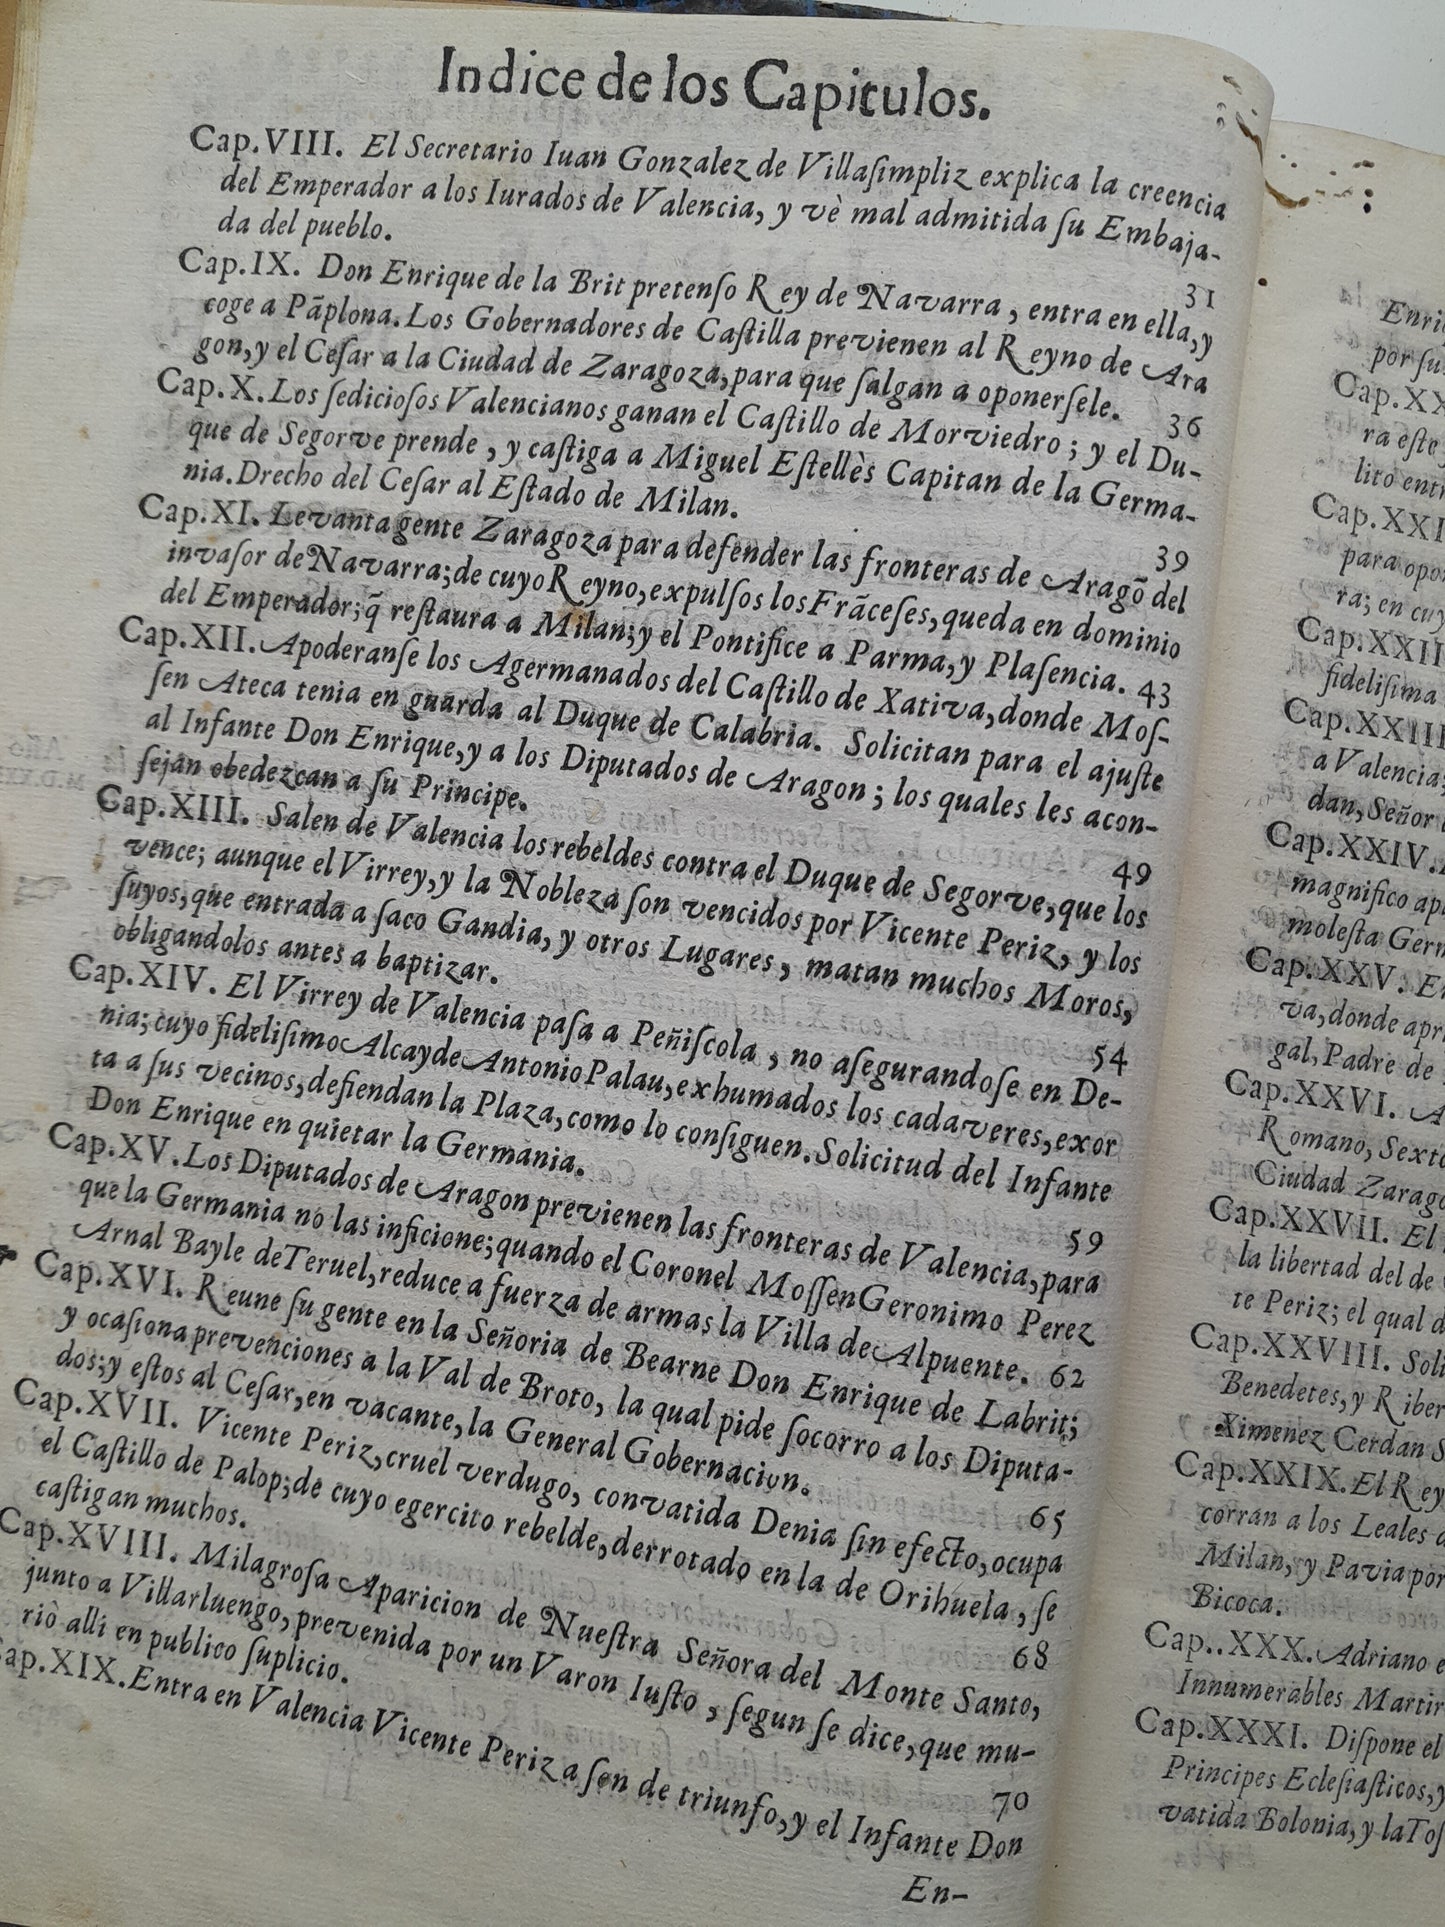 Indice de los Capitulos.
Cap.VIII. El Secretario Iuan Gonzalez de Villaſimpliz explica la creencia
del Emperador a los Iurados de Valencia, y vè mal admitida ſu Embaja-
da del pueblo.
31
Cap.IX. Don Enrique de la Brit pretenſo Rey de Navarra, entra en ella, y
coge a Pãplona. Los Gobernadores de Caſtilla previenen al Reyno de Ara
gon, y el Ceſar a la Ciudad de Zaragoza, para que ſalgan a oponerſele. 36
Cap.X. Los ſedicioſos Valencianos ganan el Caſtillo de Morviedro; y el Du-
que de Segorve prende, y caſtiga a Miguel Eſtellès Capitan de la Germa-
nia. Drecho del Ceſar al Eſtado de Milan.
39
Cap.XI. Levanta gente Zaragoza para defender las fronteras de Aragõ del
invaſor de Navarra; de cuyo Reyno, expulſos los Frãceſes, queda en dominio
del Emperador; q̃ reſtaura a Milan; y el Pontifice a Parma, y Plaſencia. 43
Cap.XII. Apoderanſe los Agermanados del Caſtillo de Xativa, donde Moſ-
ſen Ateca tenia en guarda al Duque de Calabria. Solicitan para el ajuſte
al Infante Don Enrique, y a los Diputados de Aragon; los quales les acon-
ſejan obedezcan a ſu Principe.
49
Cap.XIII. Salen de Valencia los rebeldes contra el Duque de Segorve, que los
vence; aunque el Virrey, y la Nobleza ſon vencidos por Vicente Periz, y los
ſuyos, que entrada a ſaco Gandia, y otros Lugares, matan muchos Moros,
obligandolos antes a baptizar.
54
Cap.XIV. El Virrey de Valencia paſa a Peñiſcola, no aſegurandoſe en De-
nia; cuyo fideliſimo Alcayde Antonio Palau, exhumados los cadaveres, exor
ta a ſus vecinos, defiendan la Plaza, como lo conſiguen. Solicitud del Infante
Don Enrique en quietar la Germania.
59
Cap.XV. Los Diputados de Aragon previenen las fronteras de Valencia, para
que la Germania no las inficione; quando el Coronel Moſſen Geronimo Perez
Arnal Bayle de Teruel, reduce a fuerza de armas la Villa de Alpuente. 62
Cap.XVI. Reune ſu gente en la Señoria de Bearne Don Enrique de Labrit;
y ocaſiona prevenciones a la Val de Broto, la qual pide ſocorro a los Diputa-
dos; y eſtos al Ceſar, en vacante, la General Gobernacion.
65
Cap.XVII. Vicente Periz, cruel verdugo, convatida Denia ſin efecto, ocupa
el Caſtillo de Palop; de cuyo egercito rebelde, derrotado en la de Orihuela, ſe
caſtigan muchos.
68
Cap.XVIII. Milagroſa Aparicion de Nueſtra Señora del Monte Santo,
junto a Villarluengo, prevenida por un Varon Iuſto, ſegun ſe dice, que mu-
riò alli en publico ſuplicio.
70
Cap.XIX. Entra en Valencia Vicente Periz a ſon de triunfo, y el Infante Don
En-
por ſu
ra eſte
Cap.XXII
fideliſima
Cap.XXIII
a Valencia;
dan, Señor
Cap.XXIV.
magnifico
moleſta
Cap.XXV.
va, donde
gal, Padre de
Cap.XXVI. A
Romano, Sexto
Ciudad
Cap.XXVII. El
la libertad del de
te Periz; el qual
Cap.XXVIII. Soli
Benedetes, y
Ximenez Cerdan
Cap.XXIX. El Rey
corran a los Leales
Milan, y Pavia por
Bicoca.
Cap..XXX. Adriano
Innumerables Martir
Cap.XXXI. Diſpone el
Principes Ecleſiaſticos, y
vatida Bolonia, y la Toſ